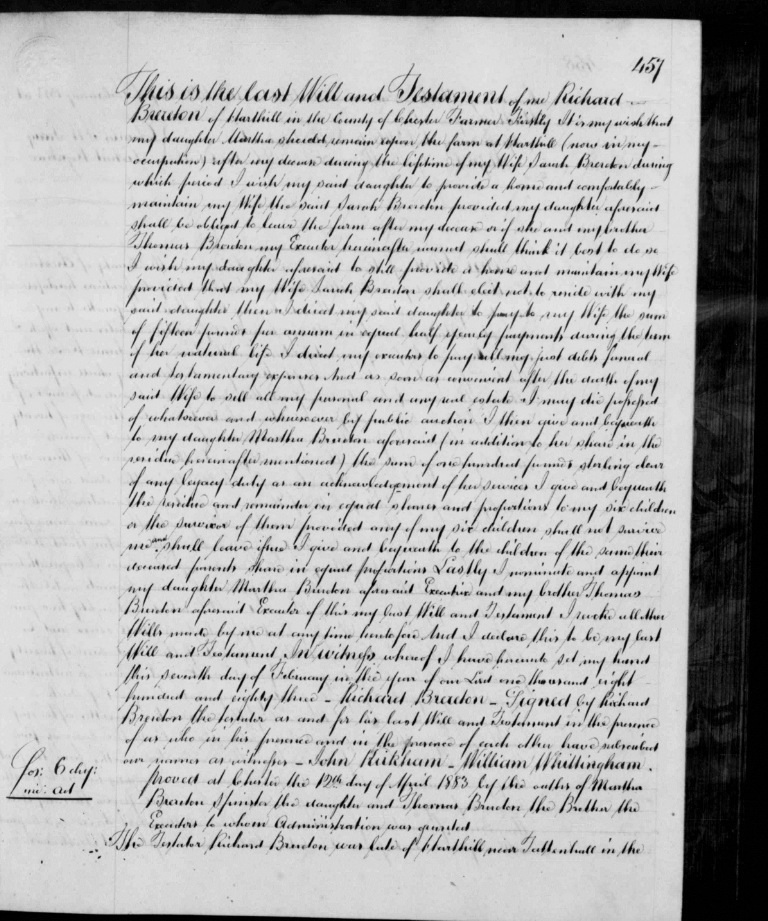 457
This is the last Will and Testament of me Richard
Breedon of Harthill in the County of Chester Farmer Firstly It is my wish that
my daughter Martha should remain upon the farm at Harthill (now in my
occupation) after my decease during the lifetime of my Wife Sarah Breedon during
which period I wish my said daughter to provide a home and comfortably
maintain my Wife the said Sarah Breedon provided my daughter aforesaid
shall be obliged to leave the farm after my decease or if she and my brother
Thomas Breedon my Executor hereinafter named shall think it best to do so
I wish my daughter aforesaid to still provide a home and maintain my Wife
provided that my Wife Sarah Breedon shall elect not to reside with my
said daughter then I direct my said daughter to pay to my Wife the sum
of fifteen pounds per annum in equal half yearly payments during the term
of her natural life I direct my executors to pay all my just debts funeral
and testamentary expenses And as soon as convenient after the death of my
said Wife to sell all my personal and any real estate I may die possessed
of whatsoever and wheresoever by public auction I then give and bequeath
to my daughter Martha Breedon aforesaid (in addition to her share in the
residue hereinafter mentioned) the sum of one hundred pounds sterling clear
of any legacy duty as an acknowledgement of her services I give and bequeath
the residue and remainder in equal shares and proportions to my six children
or the survivor of them provided any of my six children shall not survive
me and shall leave issue I give and bequeath to the children of the same their
deceased parents share in equal proportions Lastly I nominate and appoint
my daughter Martha Breedon aforesaid Executrix and my brother Thomas
Breedon aforesaid Executor of this my last Will and Testament I revoke all other
Wills made by me at any time heretofore And I declare this to be my last
Will and Testament In witness whereof I have hereunto set my hand
this seventh day of February in the year of our Lord one thousand eight
hundred and eighty three - Richard Breedon - Signed by Richard
Breedon the testator as and for his last Will and Testament in the presence
of us who in his presence and in the presence of each other have subscribed
our names as witnesses - John Kirkham - William Whittingham.
Proved at Chester the 12th day of April 1883 by the oaths of Martha
Breedon Spinster the daughter and Thomas Breedon the Brother the
Executors to whom Administration was granted
The Testator Richard Breedon was late of Harthill near Tattenhall in the
fos: 6